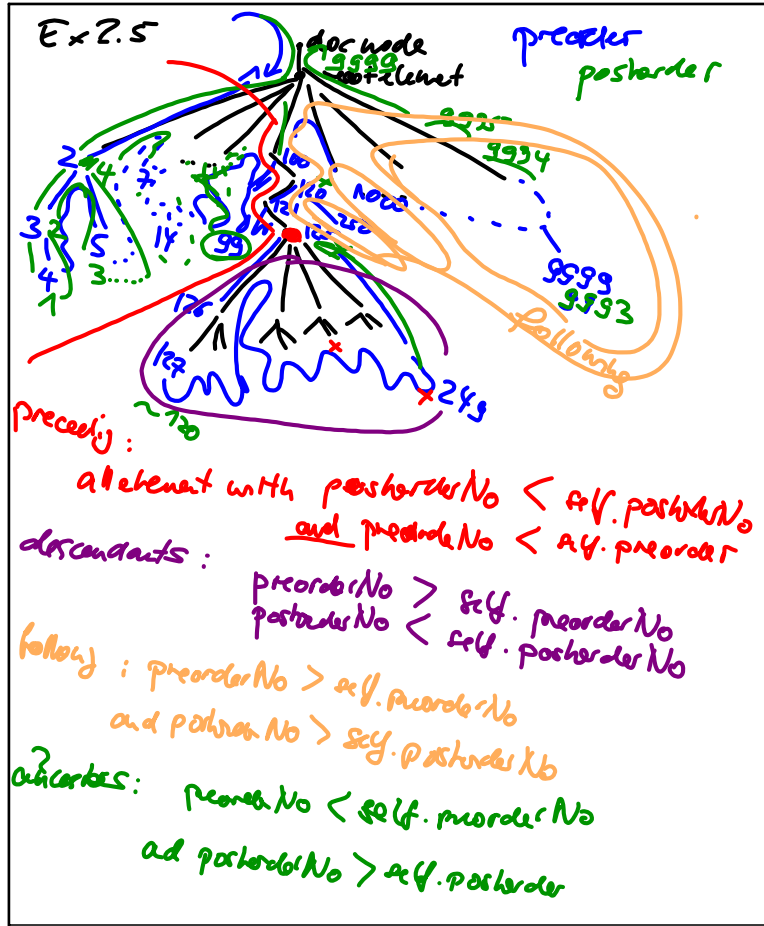 Ex 2.5
doc node
preorder
postorder
9999
root element
1
9995
9994
2
4
7
100
120
121
1000
250
3
2
5
14
99
4
3
1
9999
9993
following
126
127
249
~120
precedig:
all element with postorderNo < self.postorderNo
and preorderNo < self.preorder
descendants:
preorderNo > self.preorderNo
postorderNo < self.postorderNo
following: preorderNo > self.preorderNo
and postorderNo > self.postorderNo
ancestors:
preorderNo < self.preorderNo
ad postorderNo > self.postorder